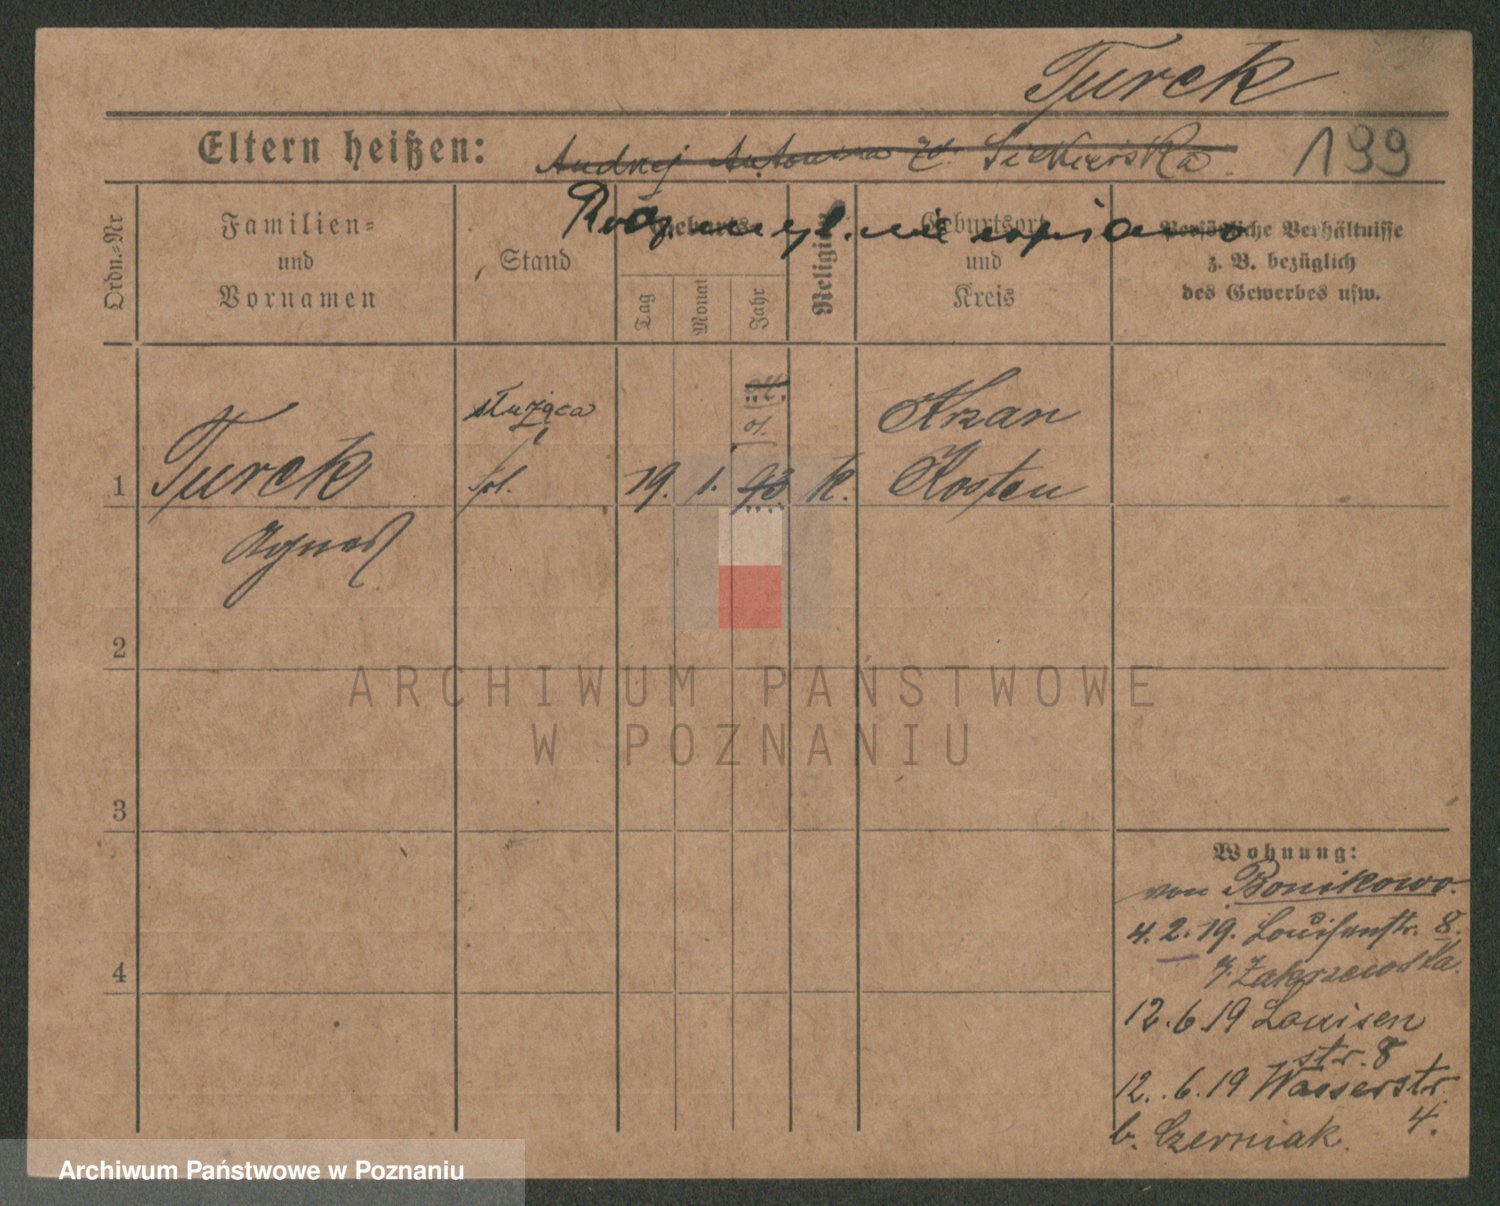 Turek
Eltern heißen: Andrzej Antonina zd. Siekierska 199
Ordn.-Nr
Familien=
und
Vornamen
Stand
Geburts
Tag
Monat
Jahr
Religion
Geburtsort
und
Kreis
Persönliche Verhältnisse
z. B. bezüglich
des Gewerbes usw.
mylnie wpisano
służąca
01.
Krzan
1 Turek 19. 1. 93 k. Kosten
Agnes
2
3
4
Wohnung:
von Bonikowo.
4. 2. 19. Louisenstr. 8.
Zakrzewska.
12. 6. 19 Louisen
str. 8
12. 6. 19 Wasserstr.
4.
b. Czerniak.
ARCHIWUM PAŃSTWOWE
W POZNANIU
Archiwum Państwowe w Poznaniu